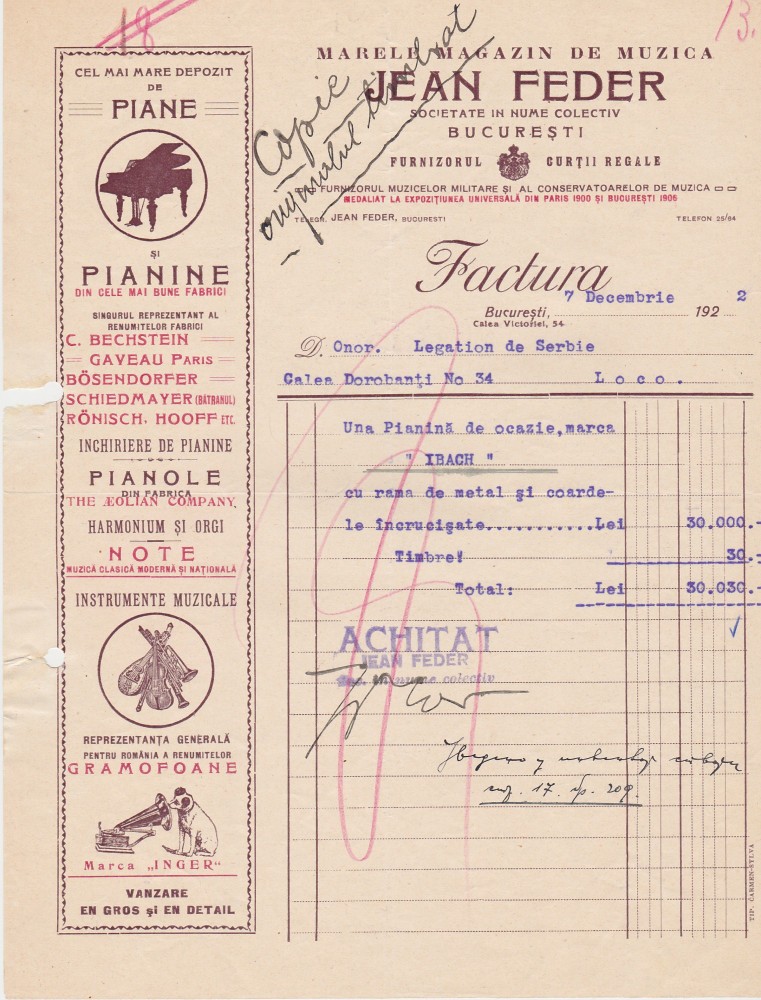 18
13.
Copie
originalul timbrat
CEL MAI MARE DEPOZIT
DE
PIANE
ȘI
PIANINE
DIN CELE MAI BUNE FABRICI
SINGURUL REPREZENTANT AL
RENUMITELOR FABRICI
C. BECHSTEIN
GAVEAU PARIS
BÖSENDORFER
SCHIEDMAYER (BĂTRANUL)
RÖNISCH, HOOFF ETC.
INCHIRIERE DE PIANINE
PIANOLE
DIN FABRICA
THE ÆOLIAN COMPANY
HARMONIUM ȘI ORGI
NOTE
MUZICĂ CLASICĂ MODERNĂ ȘI NAȚIONALĂ
INSTRUMENTE MUZICALE
REPREZENTANȚA GENERALĂ
PENTRU ROMÂNIA A RENUMITELOR
GRAMOFOANE
Marca „INGER"
VANZARE
EN GROS și EN DETAIL
MARELE MAGAZIN DE MUZICA
JEAN FEDER
SOCIETATE IN NUME COLECTIV
BUCUREȘTI
FURNIZORUL CURȚII REGALE
FURNIZORUL MUZICELOR MILITARE ȘI AL CONSERVATOARELOR DE MUZICA
MEDALIAT LA EXPOZIȚIUNEA UNIVERSALĂ DIN PARIS 1900 ȘI BUCUREȘTI 1906
TELEGR. JEAN FEDER, BUCURESTI TELEFON 25/84
Factura
București, 7 Decembrie 1922
Calea Victoriei, 54
D. Onor. Legation de Serbie
Calea Dorobanți No 34 Loco.
Una Pianină de ocazie, marca
" IBACH "
cu rama de metal și coarde-
le încrucișate...........Lei 30.000.-
Timbre! 30.-
Total: Lei 30.030.-
ACHITAT
JEAN FEDER
Soc. in nume colectiv
17. 209.
TIP. CARMEN-SYLVA